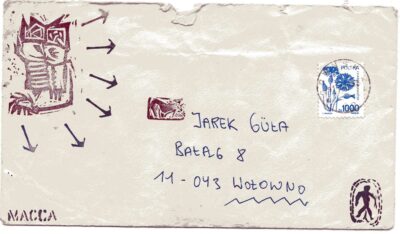 POLSKA
1000
JAREK GUŁA
BAŁĄG 8
11-043 WOŁOWNO
MACCA